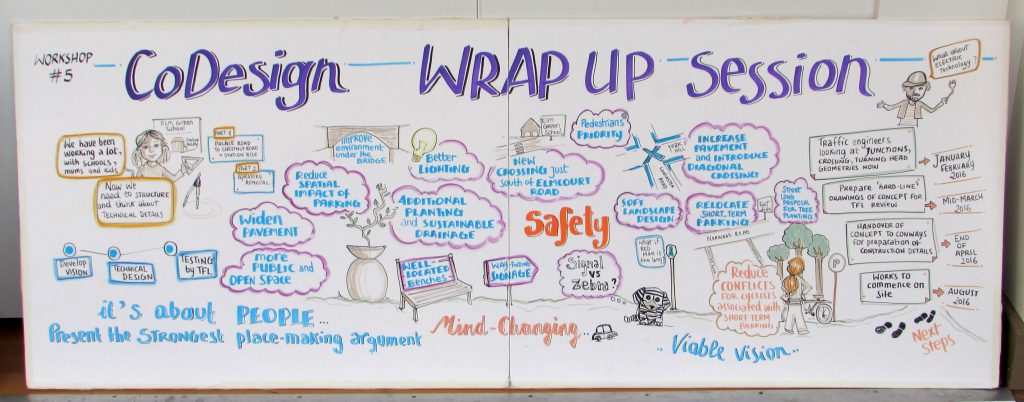 WORKSHOP
#5
CoDesign WRAP UP Session
What about
ELECTRIC
Technology?
Elm Green
School
We have been
working a lot,
with SCHOOLS,
mums and kids
Now we
need to STRUCTURE
and think about
TECHNICAL DETAILS
PART 1
PALACE ROAD
TO CHESTNUT ROAD
+ STATION RISE
PART 2
REMOVAL
Develop
VISION
TECHNICAL
DESIGN
TESTING
by TFL
Improve
environment
under the
BRIDGE
Better
LIGHTING
Reduce
SPATIAL
IMPACT OF
PARKING
Widen
PAVEMENT
more
PUBLIC and
OPEN SPACE
ADDITIONAL
PLANTING
and SUSTAINABLE
DRAINAGE
WELL-
LOCATED
Benches
Elm
Green
School
Pedestrians
PRIORITY
NEW
CROSSING just
south of ELMCOURT
ROAD
Safety
WAY-FINDING
SIGNAGE
Signal
VS
Zebra?
YORK
HILL
INCREASE
PAVEMENT
and INTRODUCE
DIAGONAL
CROSSING
SOFT
LANDSCAPE
DESIGN
RELOCATE
SHORT-TERM
PARKING
Street
LAND
PROPOSAL
FOR TREE
PLANTING
what if
RED MAN is
too long
NORWOOD ROAD
Reduce
CONFLICTS
FOR CYCLISTS
associated with
SHORT-TERM
PARKING
P
Traffic engineers
looking at JUNCTIONS,
CROSSING, TURNING HEAD
GEOMETRIES NOW
JANUARY
FEBRUARY
2016
Prepare 'HARD-LINE'
DRAWINGS OF CONCEPT FOR
TFL REVIEW
MID-MARCH
2016
HANDOVER OF
CONCEPT TO CONWAYS
for preparation of
CONSTRUCTION DETAILS
END OF
APRIL
2016
WORKS TO
commence on
Site
AUGUST
2016
Next
Steps
it's about PEOPLE...
Present the STRONGEST place-making argument
Mind-Changing..
.. Viable vision..